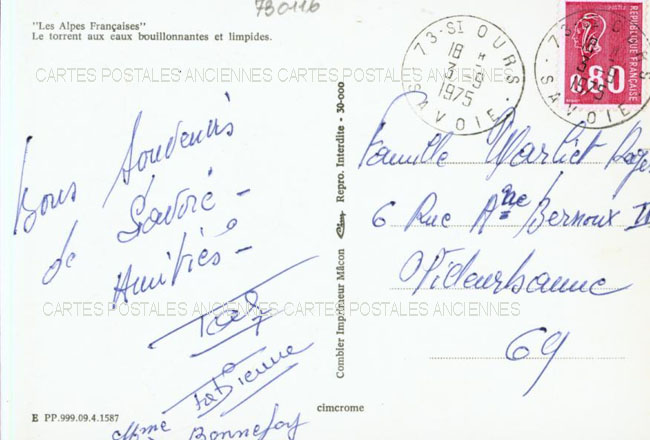 730116
"Les Alpes Françaises"
Le torrent aux eaux bouillonnantes et limpides.
73-ST OURS
18 H
3-9
1975
SAVOIE
73-ST OURS
18 H
3-9
1975
SAVOIE
REPUBLIQUE FRANÇAISE
0,80
CARTES POSTALES ANCIENNES
CARTES POSTALES ANCIENNES
Bons Souvenirs
de Savoie -
Amitiés -
Joël
Fabienne
Mme
Bonnefoy
Combier Imprimeur Mâcon Repro. Interdite - 30-000
Famille Warliet Roger
6 Rue Bernoux
Villeurbanne
69
E PP.999.09.4.1587
cimcrome
CARTES POSTALES ANCIENNES
CARTES POSTALES ANCIENNES